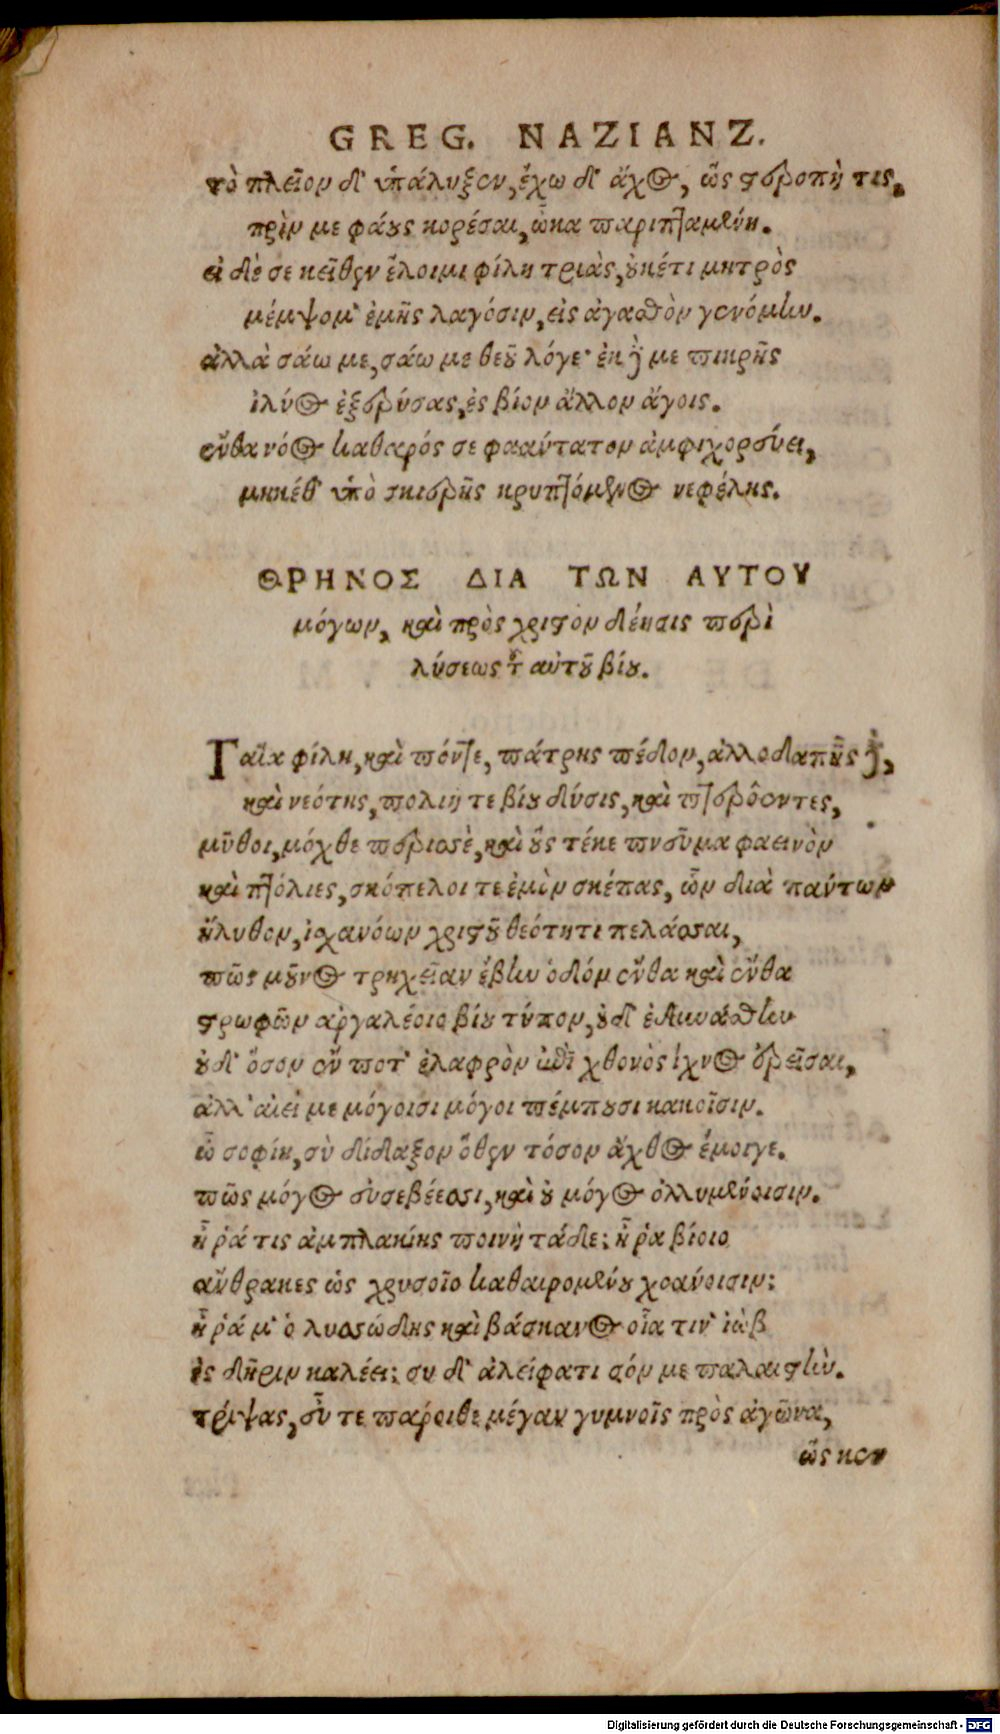 GREG. NAZIANZ.
τὸ πλεῖον δ' ὑπάλυξεν, ἔχω δ' ἄχος, ὣς στεροπή τις,
πρίν με φάους κορέσαι, ὦκα παριπταμένη.
εἰ δέ σε κεῖθεν ἕλοιμι φίλη τριὰς, οὐκέτι μητρὸς
μέμψομ' ἐμῆς λαγόσιν, εἰς ἀγαθὸν γενόμην.
ἀλλὰ σάω με, σάω με θεοῦ λόγε· ἐκ δέ με πικρῆς
ἰλύος ἐξερύσας, ἐς βίον ἄλλον ἄγοις.
ἔνθα νόος καθαρός σε φαάντατον ἀμφιχορεύει,
μηκέθ' ὑπὸ σκιερῆς κρυπτόμενος νεφέλης.
ΘΡΗΝΟΣ ΔΙΑ ΤΩΝ ΑΥΤΟΥ
μόγων, καὶ πρὸς χριστὸν δέησις περὶ
λύσεως τοῦ αὐτοῦ βίου.
Γαῖα φίλη, καὶ πόντε, πάτρης πέδον, ἀλλοδαπῆς δὲ,
καὶ νεότης, πολιή τε βίου δύσις, καὶ πτερόεντες,
μῦθοι, μόχθε περισσὲ, καὶ οὓς τέκε πνεῦμα φαεινὸν
καὶ πτόλιες, σκόπελοί τε ἐμὶν σκέπας, ὧν διὰ πάντων
ἤλυθον, ἰσχανόων χριστοῦ θεότητι πελάσσαι,
πῶς μοῦνος τρηχεῖαν ἔβην ὁδὸν ἔνθα καὶ ἔνθα
στρωφῶν ἀργαλέοιο βίου τύπον, οὐδ' ἐδυνάσθην
οὐδ' ὅσον ἔν ποτ' ἐλαφρὸν ἐπὶ χθονὸς ἴχνος ἐρεῖσαι,
ἀλλ' αἰεί με μόγοισι μόγοι πέμπουσι κακοῖσιν.
ὦ σοφίη, σὺ δίδαξον ὅθεν τόσον ἄχθος ἔμοιγε.
πῶς μόγος εὐσεβέεσσι, καὶ οὐ μόγος ὀλλυμένοισιν.
ἦ ῥά τις ἀμπλακίης ποινὴ τάδε; ἦ ῥα βίοιο
ἄνθρακες ὡς χρυσοῖο καθαιρομένου χοάνοισιν;
ἦ ῥά μ' ὁ λυσσώδης καὶ βάσκανος οἷά τιν' ἰὼβ
ἐς δῆριν καλέει; συ δ' ἀλείφατι σόν με παλαιστὴν.
τρίψας, εὖ τε πάροιθε μέγαν γυμνοῖς πρὸς ἀγῶνα,
ὥς κεν
Digitalisierung gefördert durch die Deutsche Forschungsgemeinschaft - DFG